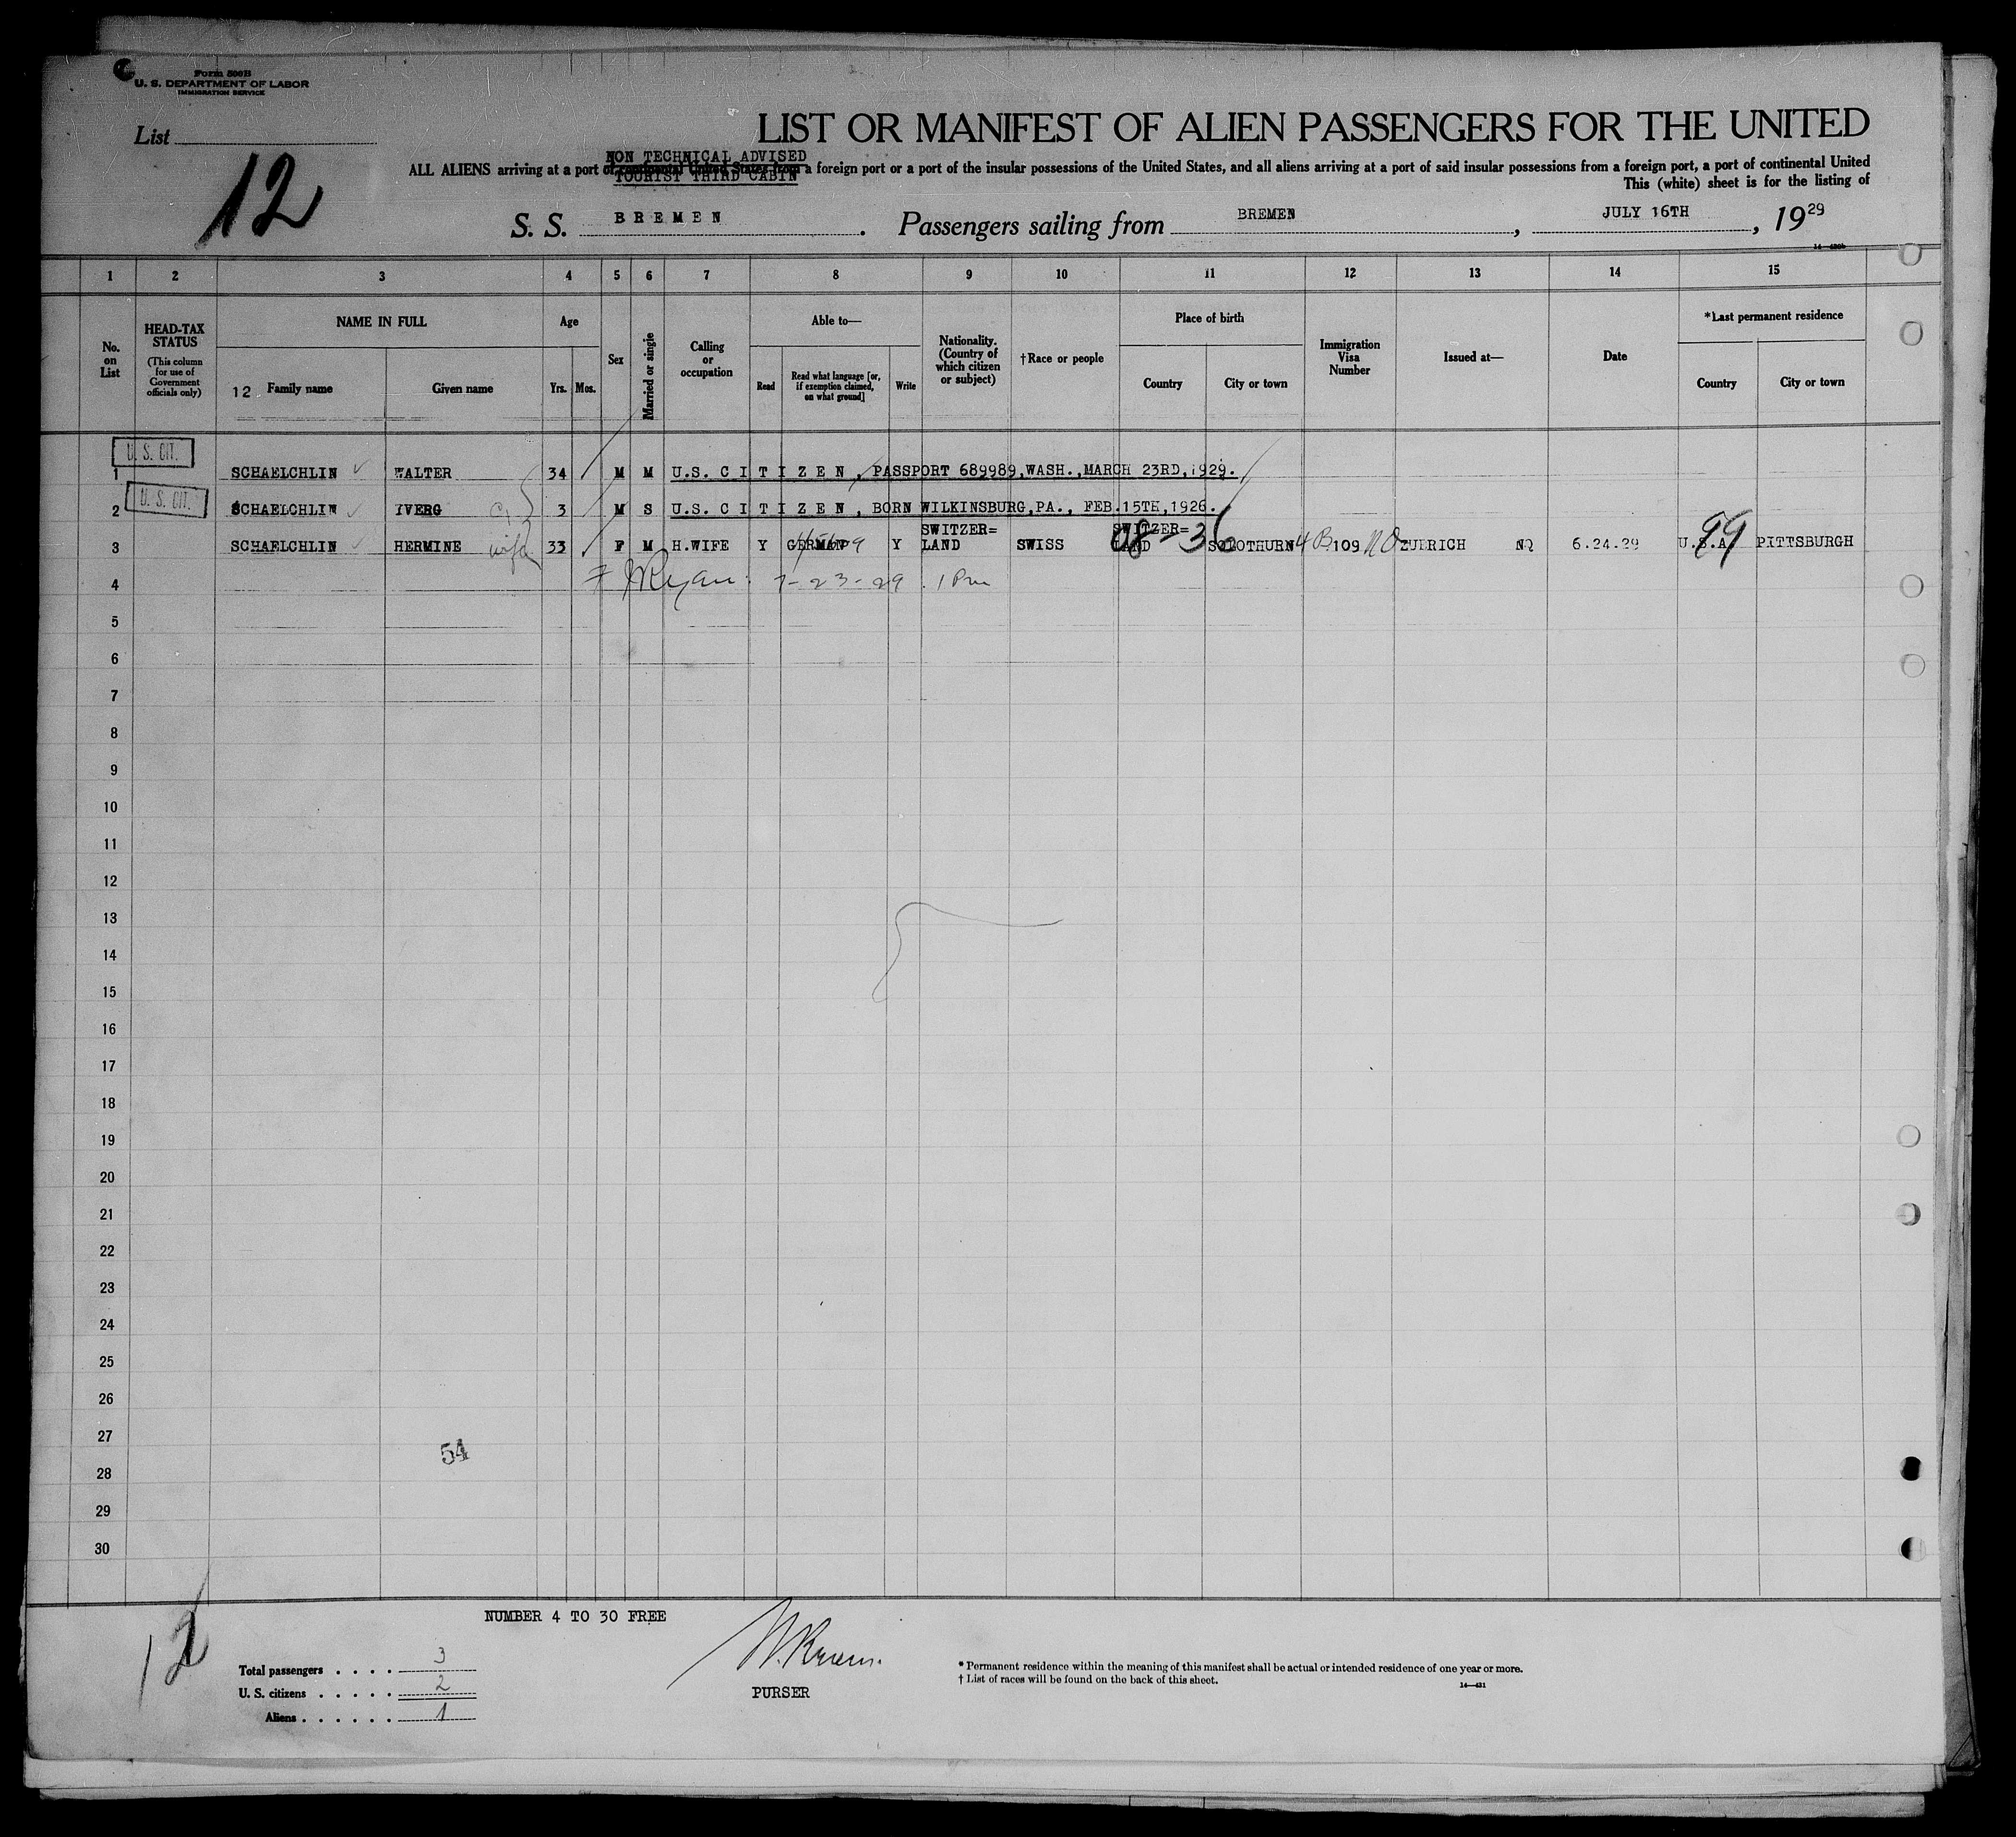 Form 500B
U. S. DEPARTMENT OF LABOR
IMMIGRATION SERVICE
List
12
LIST OR MANIFEST OF ALIEN PASSENGERS FOR THE UNITED
NON TECHNICAL ADVISED
ALL ALIENS arriving at a port of continental United States from a foreign port or a port of the insular possessions of the United States, and all aliens arriving at a port of said insular possessions from a foreign port, a port of continental United
TOURIST THIRD CABIN
This (white) sheet is for the listing of
S. S. BREMEN. Passengers sailing from BREMEN, JULY 16TH, 1929
1 2 3 4 5 6 7 8 9 10 11 12 13 14 15
No. on List
HEAD-TAX STATUS
(This column for use of Government officials only)
NAME IN FULL
12 Family name
Given name
Age
Yrs. Mos.
Sex
Married or single
Calling or occupation
Able to—
Read
Read what language [or, if exemption claimed, on what ground]
Write
Nationality. (Country of which citizen or subject)
†Race or people
Place of birth
Country
City or town
Immigration Visa Number
Issued at—
Date
*Last permanent residence
Country
City or town
U. S. CIT.
1 SCHAELCHLIN WALTER 34 M M U.S. CITIZEN, PASSPORT 689989,WASH.,MARCH 23RD,1929.
U. S. CIT.
2 SCHAELCHLIN YVERG 3 M S U.S. CITIZEN, BORN WILKINSBURG,PA., FEB.15TH,1926.
3 SCHAELCHLIN HERMINE wife 33 F M H.WIFE Y GERMAN Y SWITZER=LAND SWISS SWITZER=LAND SOLOTHURN 4B 109 NO ZUERICH NQ 6.24.29 U.S.A. PITTSBURGH
08-36
99
4 JRyan. 7-23-29. 1 Pm
5
6
7
8
9
10
11
12
13
14
15
16
17
18
19
20
21
22
23
24
25
26
27
54
28
29
30
NUMBER 4 TO 30 FREE
12
Total passengers . . . . 3
U. S. citizens . . . . . 2
Aliens . . . . . . 1
PURSER
* Permanent residence within the meaning of this manifest shall be actual or intended residence of one year or more.
† List of races will be found on the back of this sheet.
14—431